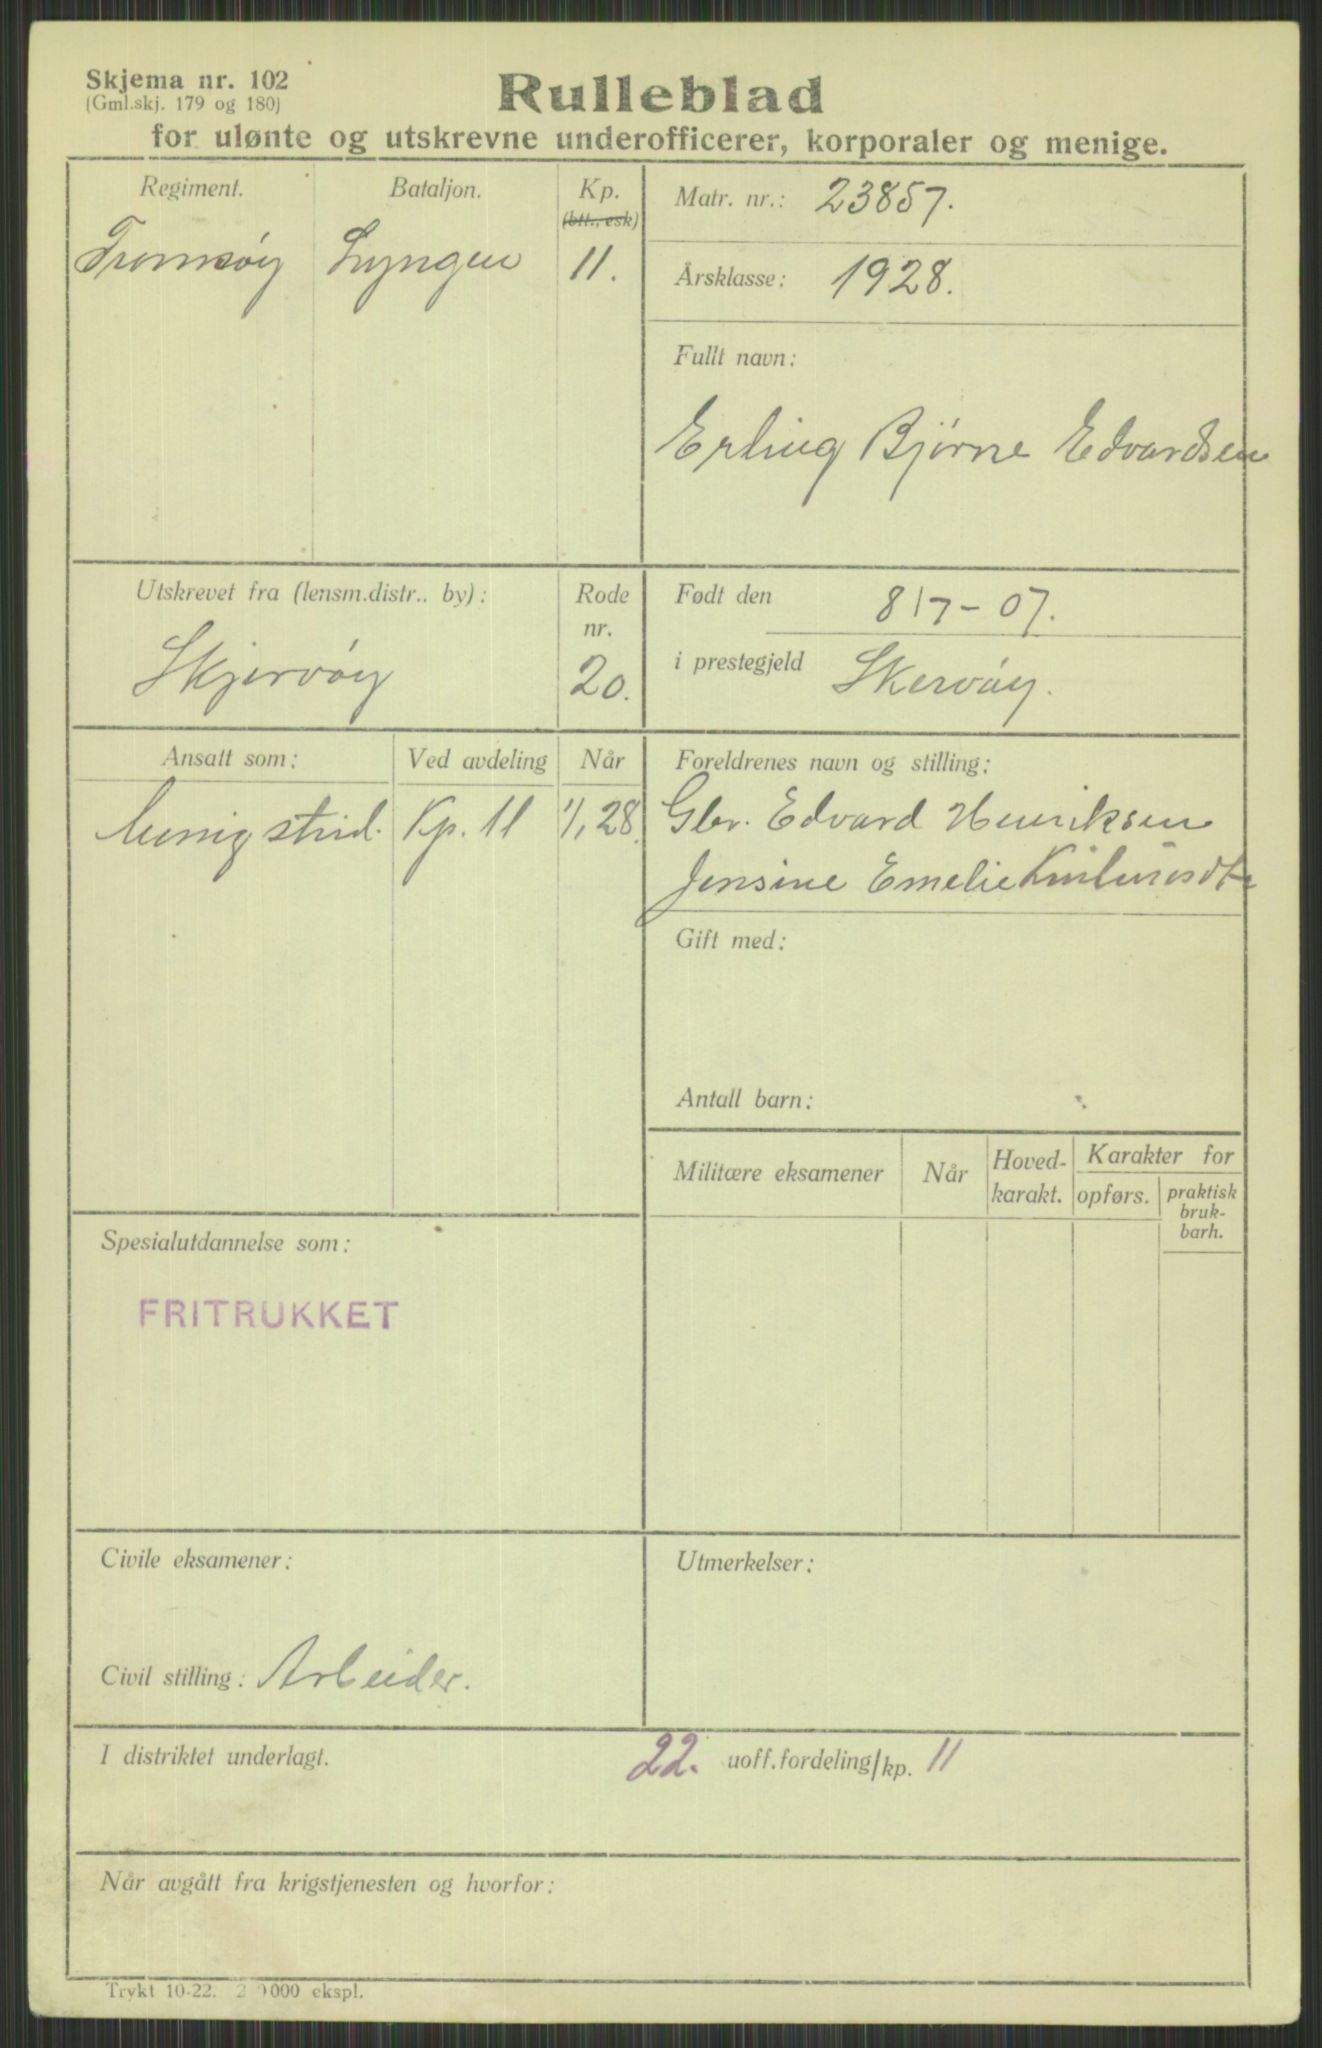 Skjema nr. 102
(Gml.skj. 179 og 180)
Rulleblad
for ulønte og utskrevne underofficerer, korporaler og menige.
Regiment.
Bataljon.
Kp.
(btt., esk)
Tromsøy
Lyngen
11.
Matr. nr.: 23857.
Årsklasse: 1928.
Fullt navn:
Erling Bjørne Edvardsen
Utskrevet fra (lensm.distr.. by):
Skjervøy
Rode
nr.
20.
Født den 8/7-07.
i prestegjeld Skervøy.
Ansatt som:
Ved avdeling
Når
Menig strid.
Kp. 11
1/1 28.
Foreldrenes navn og stilling:
Gbr. Edvard Henriksen
Jensine Emelie
Gift med:
Antall barn:
Militære eksamener
Når
Hoved-
karakt.
Karakter for
opførs.
praktisk
bruk-
barh.
Spesialutdannelse som:
FRITRUKKET
Civile eksamener:
Civil stilling: Arbeider.
Utmerkelser:
I distriktet underlagt.
22. uoff.fordeling/kp. 11
Når avgått fra krigstjenesten og hvorfor:
Trykt 10-22. 2 0000 ekspl.